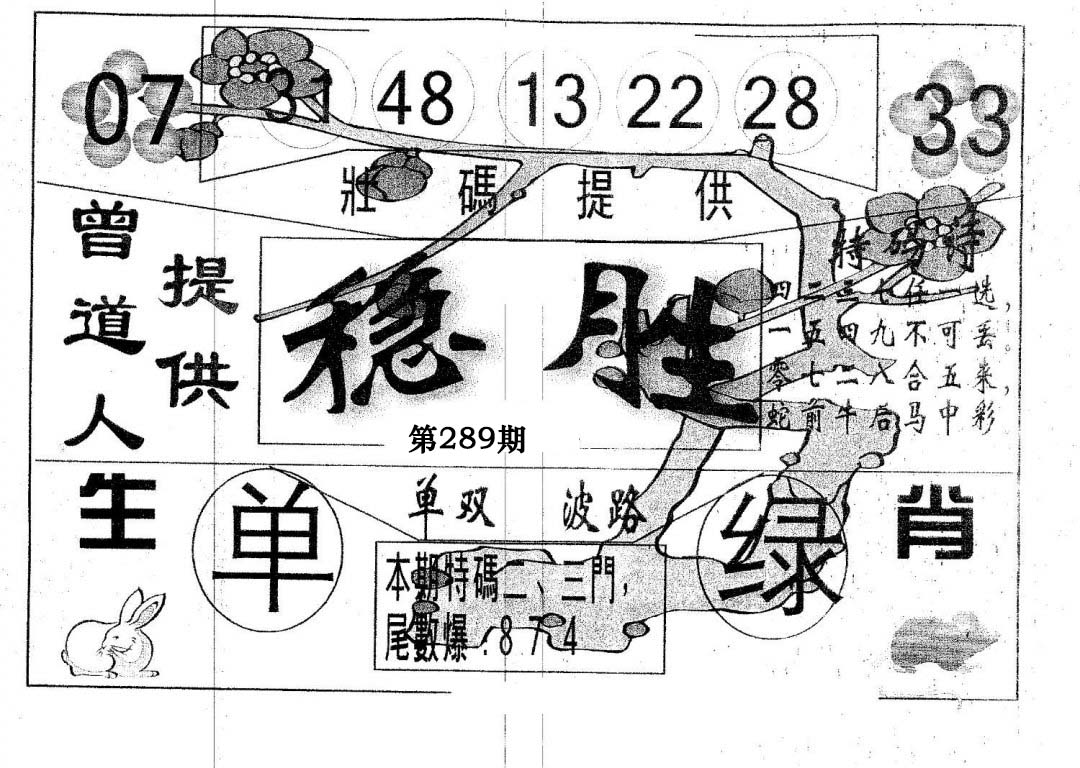 07 31 48 13 22 28 33
壯碼提供
曾道人
提供
稳胜
第289期
特码诗
四二三七任一选，
一五四九不可丢。
零七二八合五来，
蛇前牛后马中彩
生
单
单双 波路
绿
肖
本期特碼二、三門，
尾數爆：8 7 4